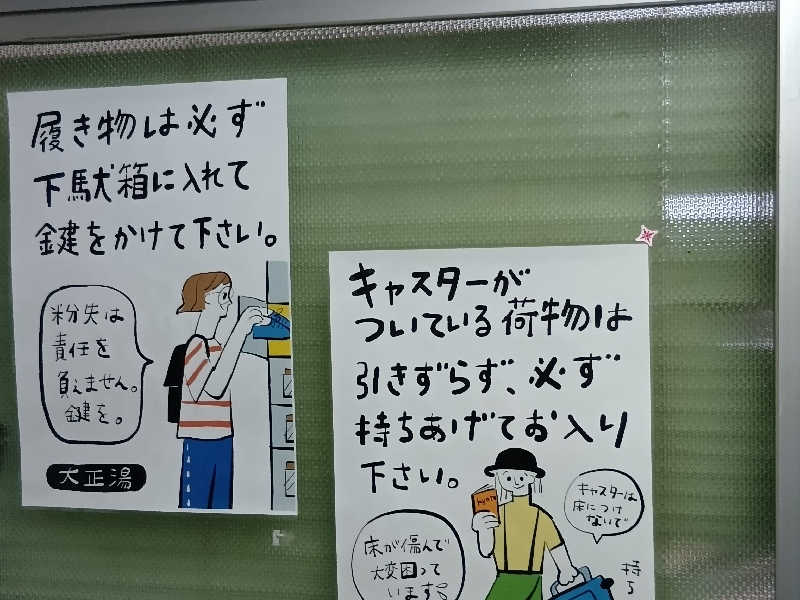 履き物は必ず
下駄箱に入れて
鍵をかけて下さい。
粉失は
責任を
負えません。
鍵を。
大正湯
キャスターが
ついている荷物は
引きずらず、必ず
持ちあげてお入り
下さい。
キャスターは
床につけ
ないで
床が傷んで
大変困って
います
持ち